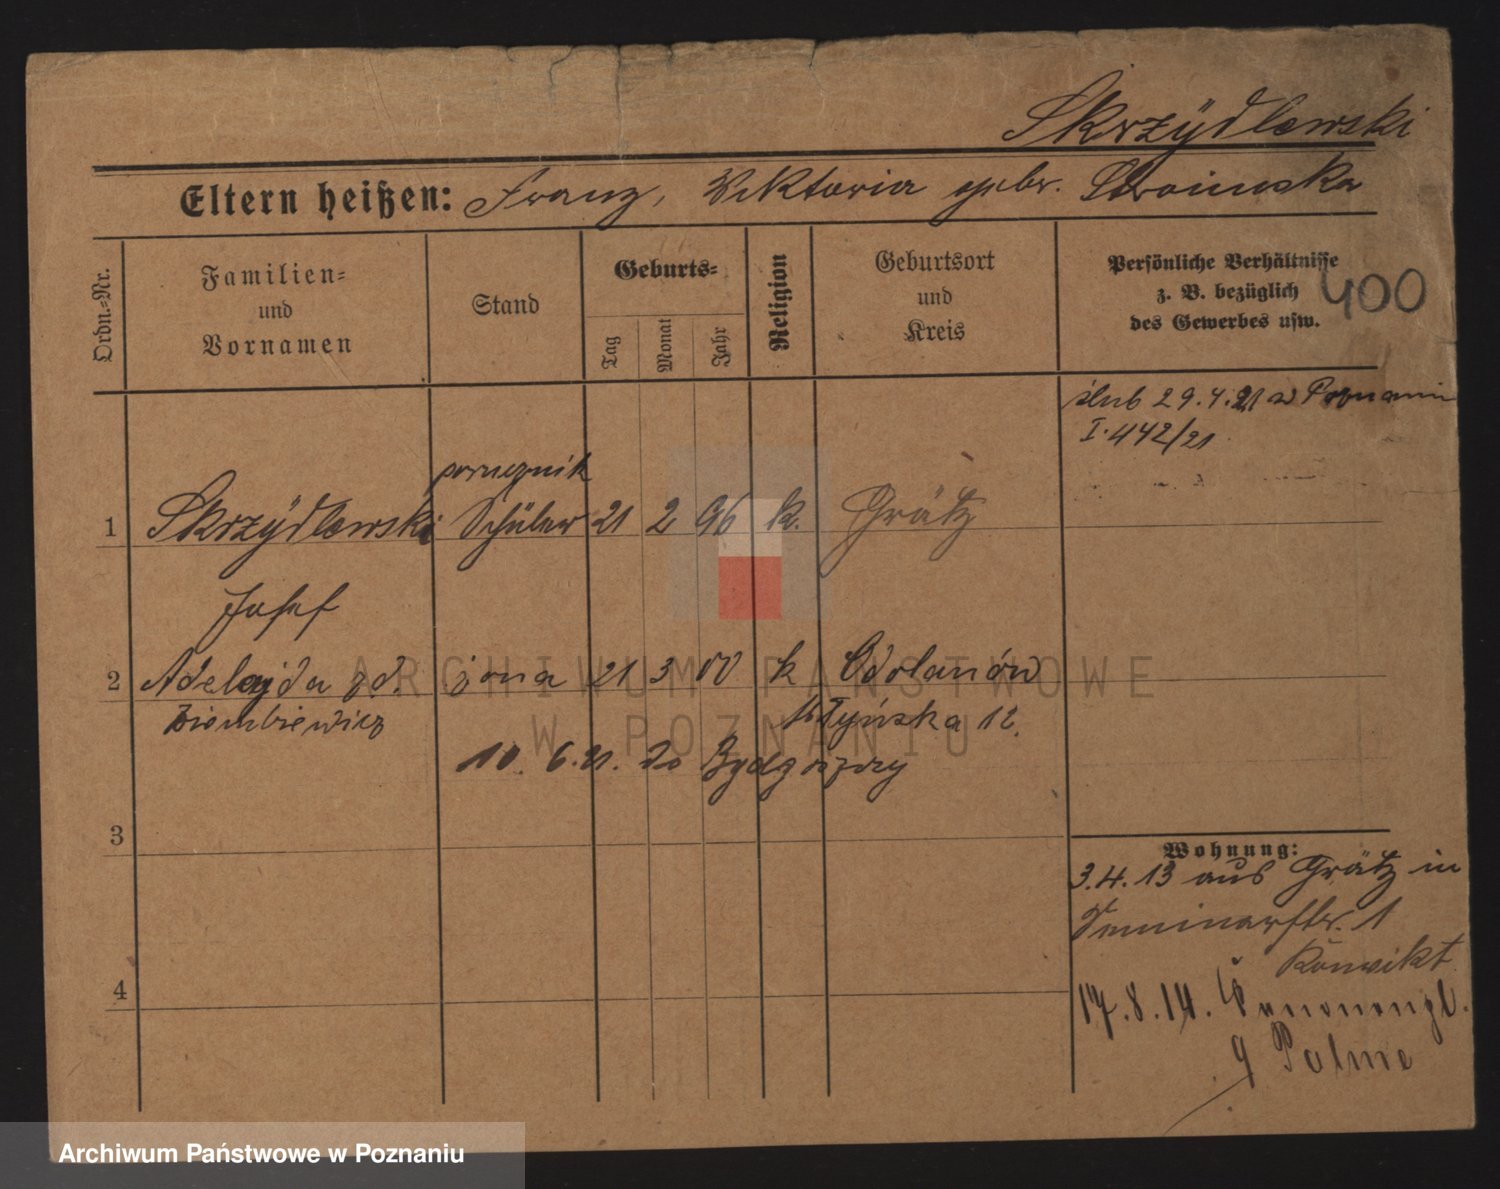 Skrzÿdlewski
Eltern heißen: Franz, Viktoria gebr. Stroinska
Ordn.=Nr.
Familien=
und
Vornamen
Stand
Geburts=
Tag
Monat
Jahr
Religion
Geburtsort
und
Kreis
Persönliche Verhältnisse
z. B. bezüglich
des Gewerbes usw.
400
ślub 29.4.21 w Poznaniu
I.442/21
porucznik
1 Skrzÿdlewski Schüler 21 2 96 k. Grätz
Josef
2 Adelajda zd. żona 21 3 00 k Odolanów
Ziembiewicz Młyńska 12.
10. 6. 21. do Bydgoszczy
3
4
Wohnung:
3.4.13 aus Grätz in
Seminarstr. 1
Konvikt
17.8.14.
9 Palme
ARCHIWUM PAŃSTWOWE
W POZNANIU
Archiwum Państwowe w Poznaniu